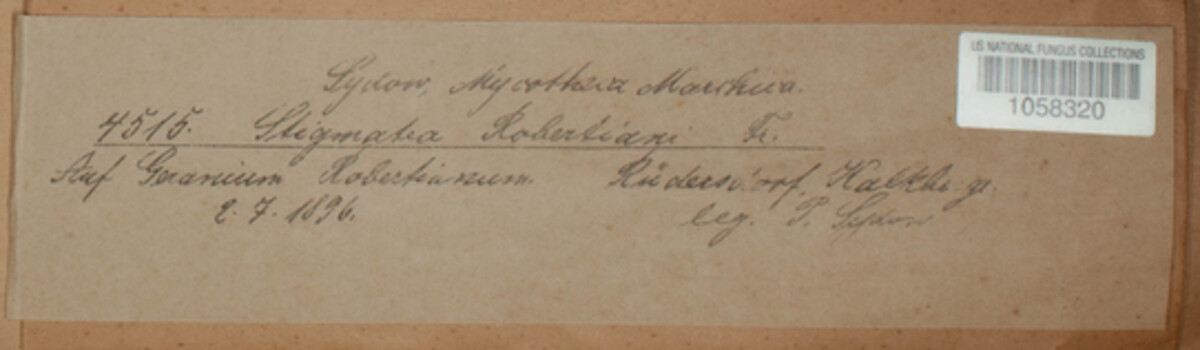 US NATIONAL FUNGUS COLLECTIONS
1058320
Sydow, Mycotheca Marchica.
4515. Stigmatea Robertiani Fr.
Auf Geranium Robertianum. Rüdersdorf, Kalkberge.
2. 7. 1896. leg. P. Sydow